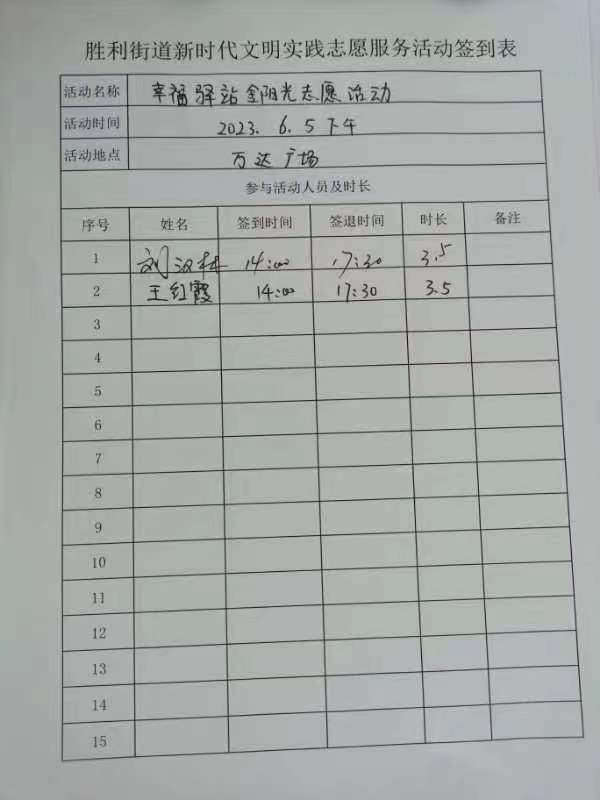 胜利街道新时代文明实践志愿服务活动签到表
活动名称 幸福驿站金阳光志愿活动
活动时间 2023. 6. 5 下午
活动地点 万达广场
参与活动人员及时长
序号 姓名 签到时间 签退时间 时长 备注
1 刘汉林 14:00 17:30 3.5
2 王红霞 14:00 17:30 3.5
3
4
5
6
7
8
9
10
11
12
13
14
15